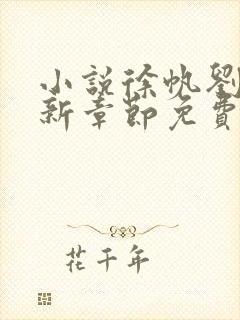 小說徐帆劉
新章節免費
花千年